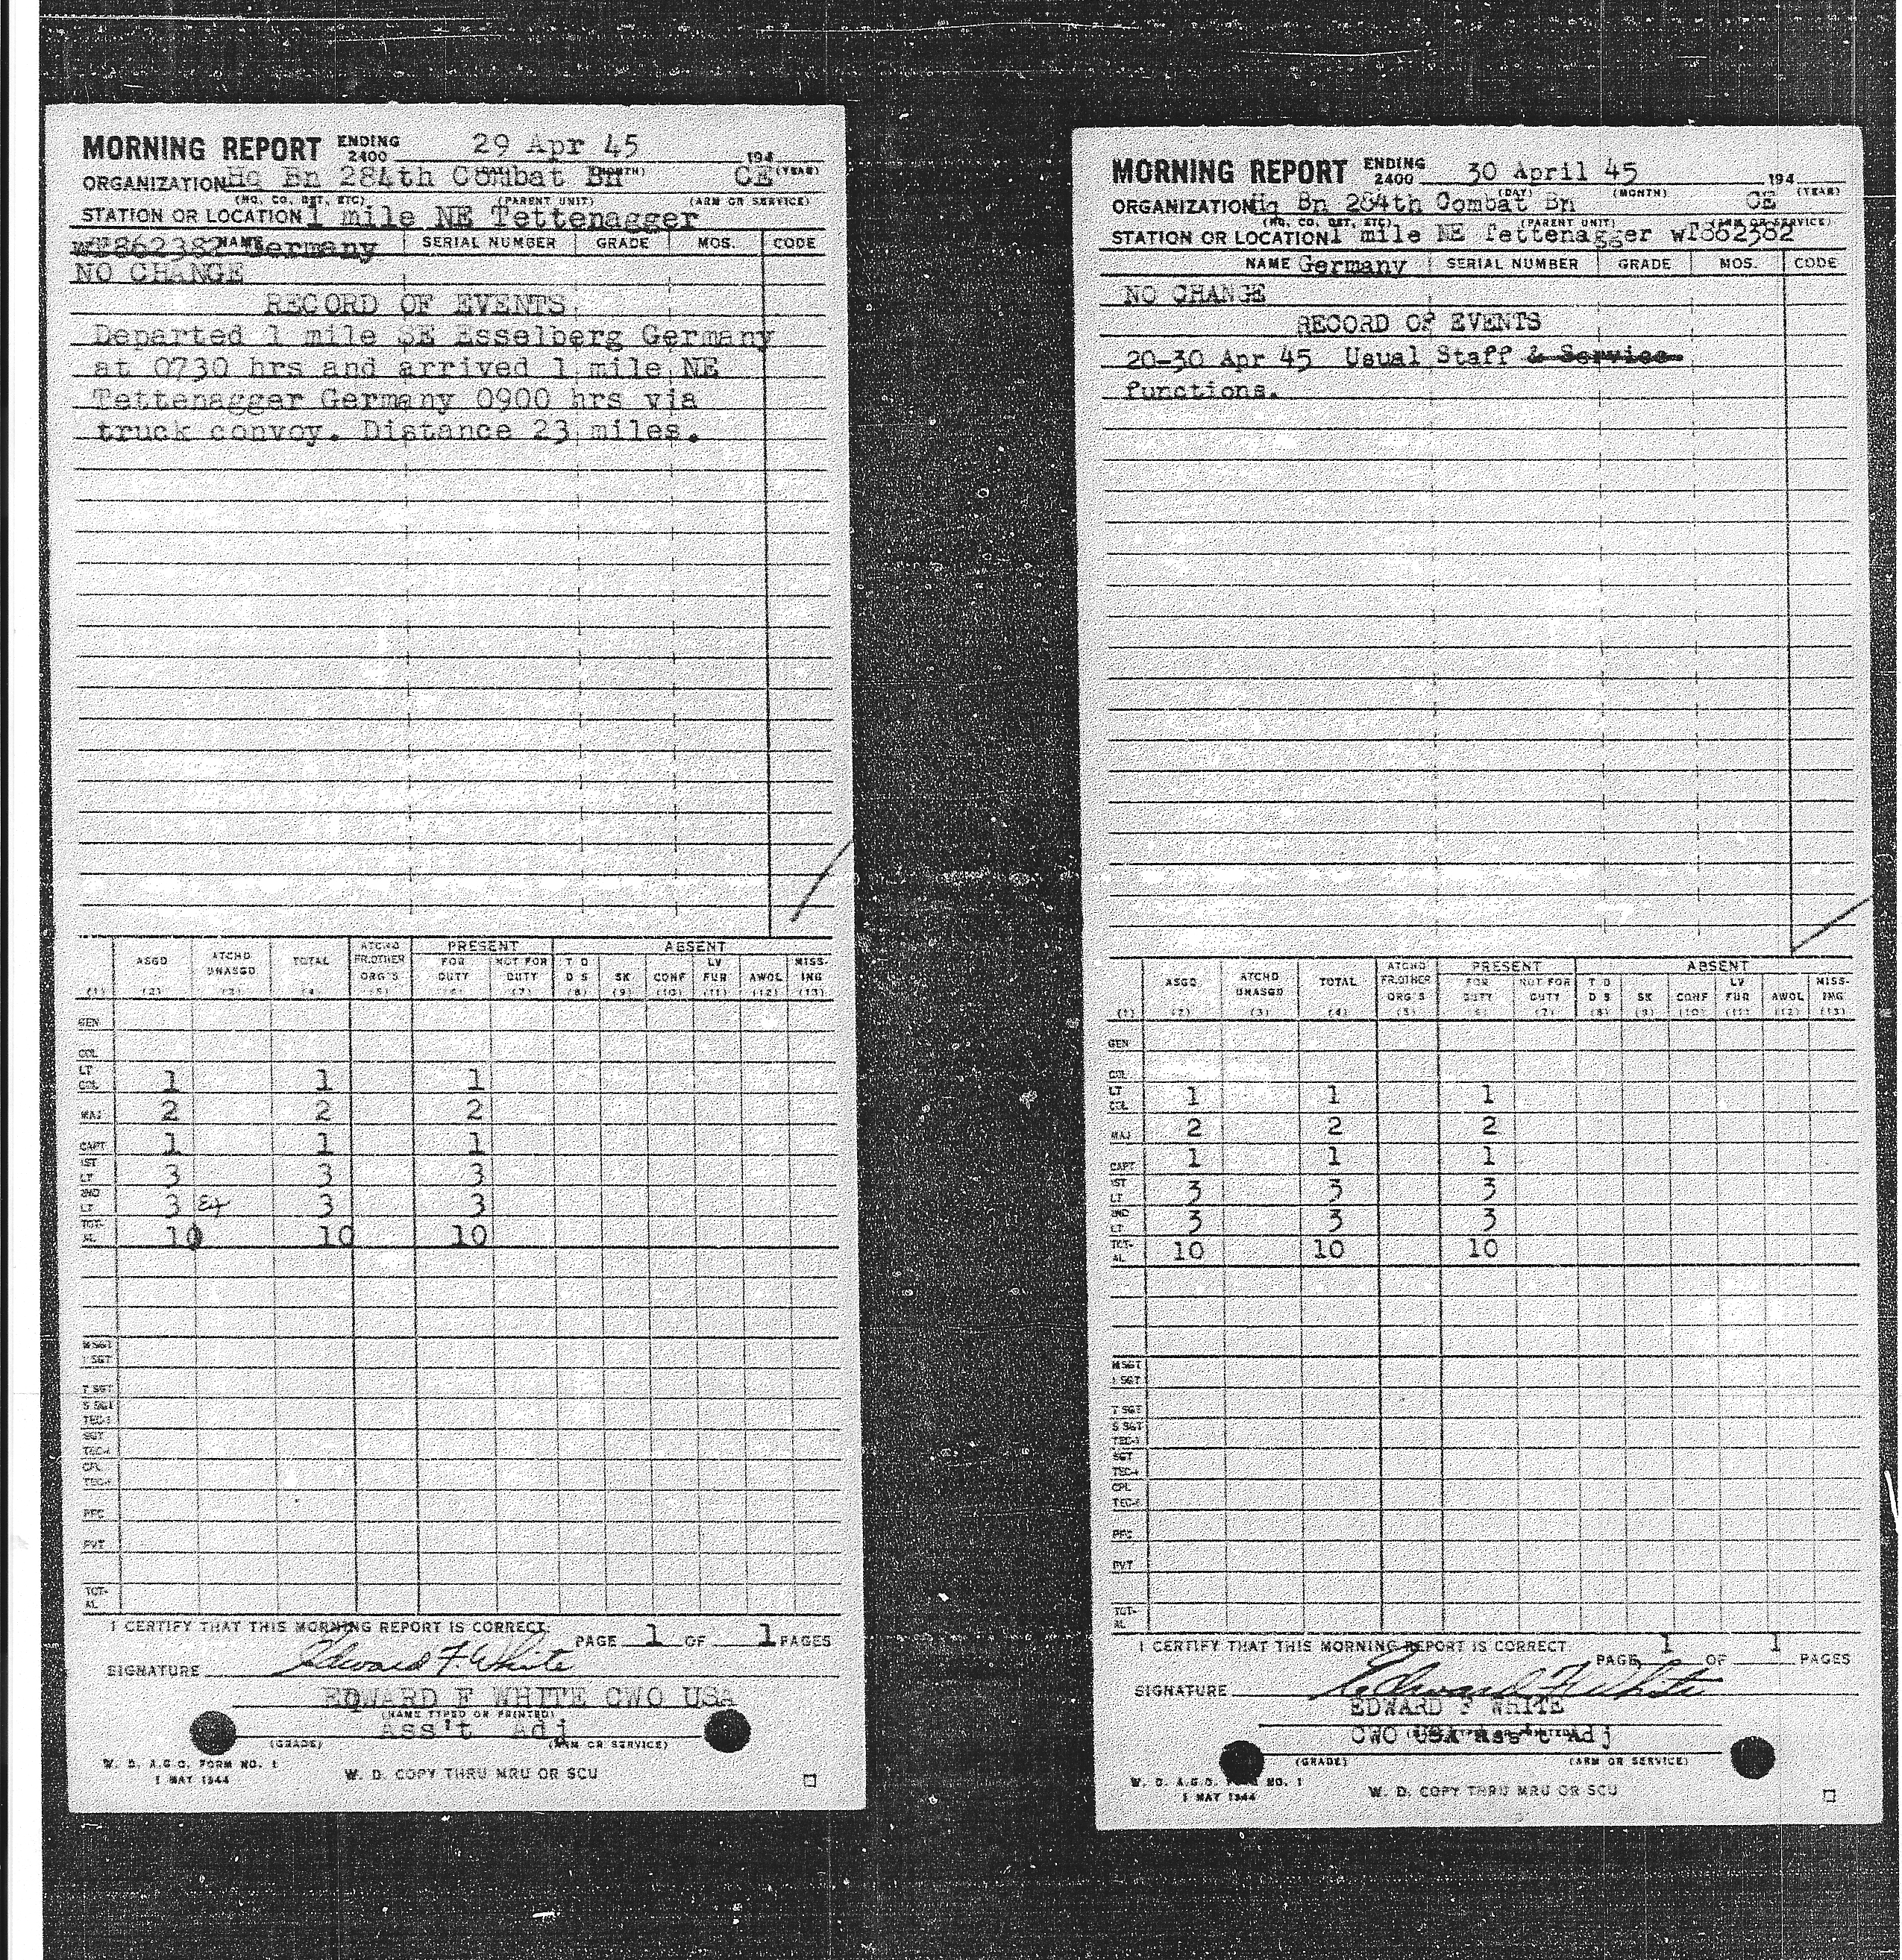 MORNING REPORT ENDING 2400 29 Apr 45 194
ORGANIZATION Hq Bn 284th Combat Bn CE (YEAR)
(HQ. CO. DET. ETC) (PARENT UNIT) (ARM OR SERVICE)
STATION OR LOCATION 1 mile NE Tettenagger
wT862382 Germany NAME SERIAL NUMBER GRADE MOS. CODE
NO CHANGE
RECORD OF EVENTS
Departed 1 mile SE Esselberg Germany
at 0730 hrs and arrived 1 mile NE
Tettenagger Germany 0900 hrs via
truck convoy. Distance 23 miles.
ATCHD PRESENT ABSENT
ASGD ATCHD UNASGD TOTAL FR.OTHER ORG'S FOR DUTY NOT FOR DUTY T D D S SK CONF LV FUR AWOL MISS-ING
(1) (2) (3) (4) (5) (6) (7) (8) (9) (10) (11) (12) (13)
GEN
COL
LT COL 1 1 1
MAJ 2 2 2
CAPT 1 1 1
1ST LT 3 3 3
2ND LT 3 3 3
TOT-AL 10 10 10
M SGT
1 SGT
T SGT
S SGT
TEC-3
SGT
TEC-4
CPL
TEC-5
PFC
PVT
TOT-AL
I CERTIFY THAT THIS MORNING REPORT IS CORRECT. PAGE 1 OF 1 PAGES
SIGNATURE Edward F. White
EDWARD F WHITE CWO USA
(NAME TYPED OR PRINTED)
Ass't Adj
(GRADE) (ARM OR SERVICE)
W. D. A.G.O. FORM NO. 1
1 MAY 1944 W. D. COPY THRU MRU OR SCU
MORNING REPORT ENDING 2400 30 April 45 194
(DAY) (MONTH) (YEAR)
ORGANIZATION Hq Bn 284th Combat Bn CE
(HQ. CO. DET. ETC) (PARENT UNIT) (ARM OR SERVICE)
STATION OR LOCATION 1 mile NE Tettenagger wT862382
NAME Germany SERIAL NUMBER GRADE MOS. CODE
NO CHANGE
RECORD OF EVENTS
20-30 Apr 45 Usual Staff & Service
functions.
ATCHD PRESENT ABSENT
ASGD ATCHD UNASGD TOTAL FR.OTHER ORG'S FOR DUTY NOT FOR DUTY T D D S SK CONF LV FUR AWOL MISS-ING
(1) (2) (3) (4) (5) (6) (7) (8) (9) (10) (11) (12) (13)
GEN
COL
LT COL 1 1 1
MAJ 2 2 2
CAPT 1 1 1
1ST LT 3 3 3
2ND LT 3 3 3
TOT-AL 10 10 10
M SGT
1 SGT
T SGT
S SGT
TEC-3
SGT
TEC-4
CPL
TEC-5
PFC
PVT
TOT-AL
I CERTIFY THAT THIS MORNING REPORT IS CORRECT.
PAGE 1 OF 1 PAGES
SIGNATURE Edward F White
EDWARD F WHITE
CWO USA Ass't Adj
(GRADE) (ARM OR SERVICE)
W. D. A.G.O. FORM NO. 1
1 MAY 1944 W. D. COPY THRU MRU OR SCU